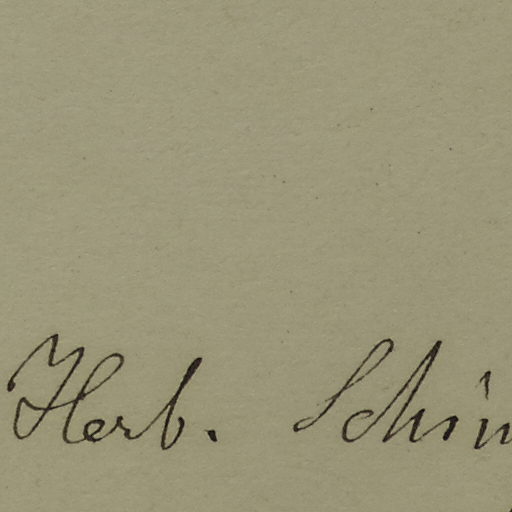 Herb. Schin